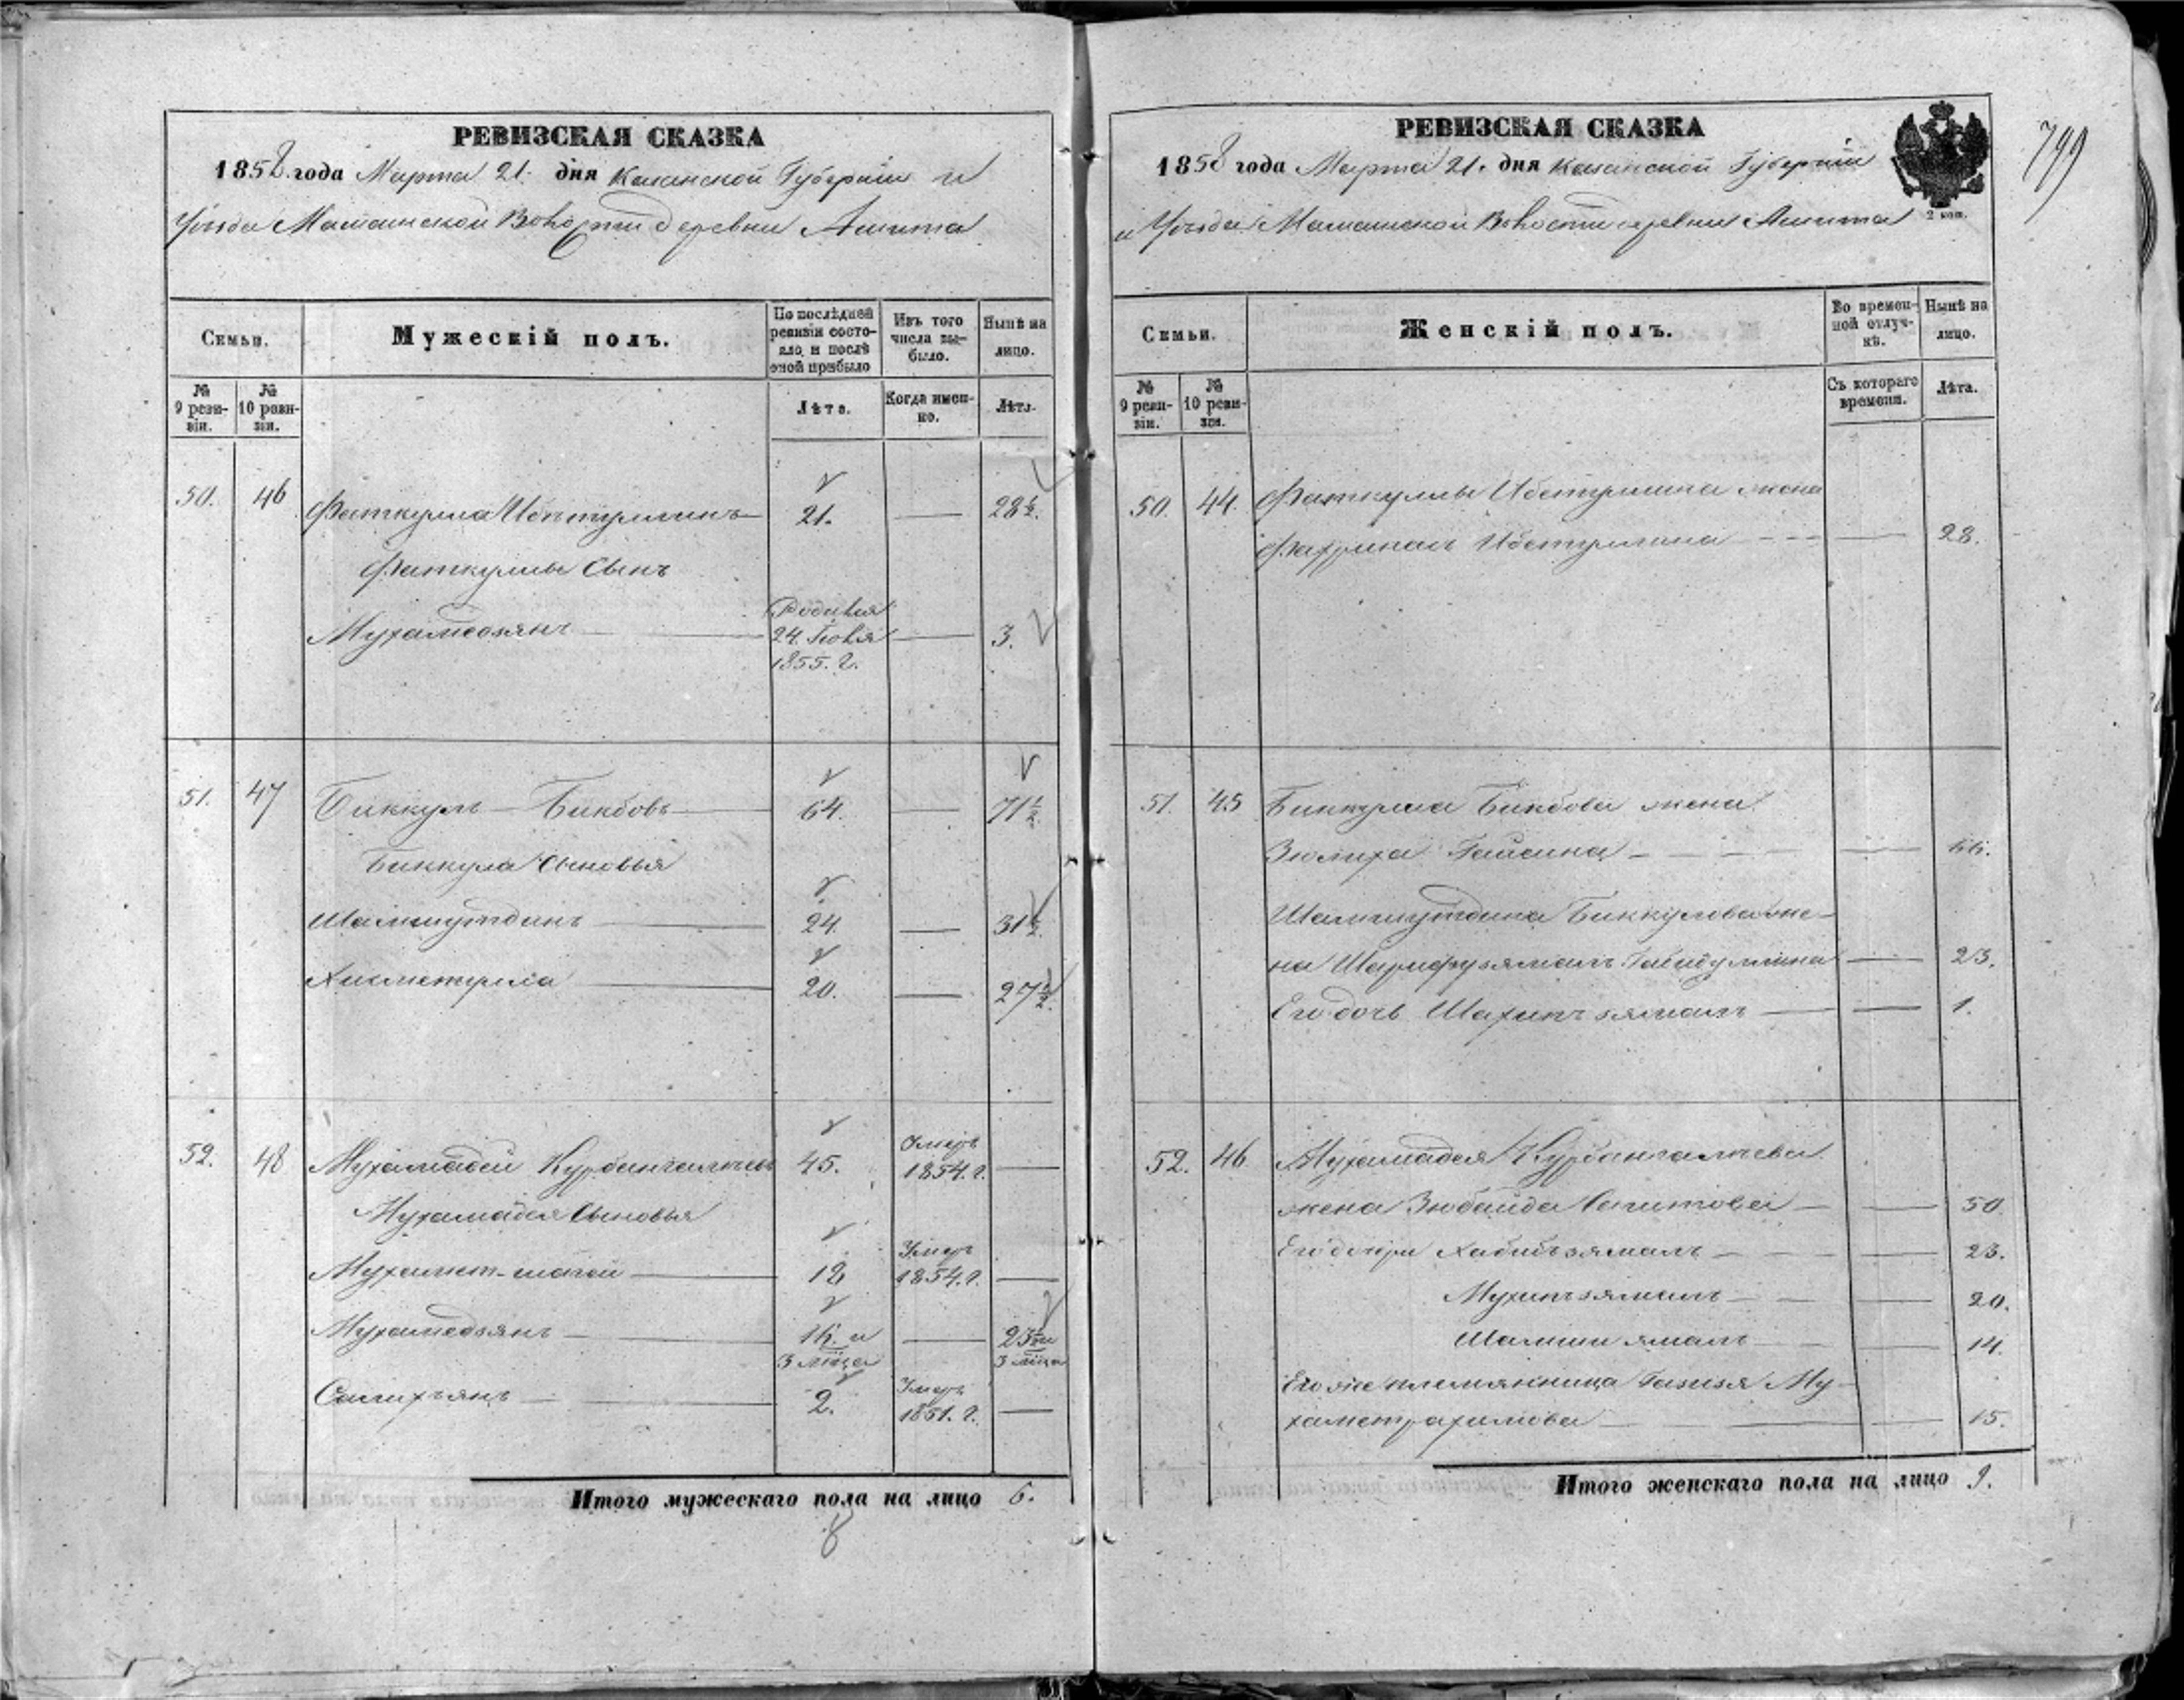 РЕВИЗСКАЯ СКАЗКА
1858 года Марта 21. дня Казанской Губерніи и
Уѣзда Мамсинской Волости деревни Ашита
Семьи.
Мужескій полъ.
По послѣдней ревизіи состояло и послѣ оной прибыло
Изъ того числа выбыло.
Нынѣ на лицо.
№ 9 ревизіи.
№ 10 ревизіи.
Лѣта.
Когда именно.
Лѣта.
50. 46 Фаткулла Ибетуллинъ 21. — 28½.
Фаткуллы Сынъ
Мухамедзянъ Родился 24. Іюля 1855. г. — 3.
51. 47 Биккулъ Бикбовъ 64. — 71½
Биккула Сыновья
Шамшутдинъ 24. — 31½.
Хисметулла 20. — 27½.
52. 48 Мухамадей Курбангалеевъ 45. Умеръ 1854. г. —
Мухамадея Сыновья
Мухамет 12 Умеръ 1854. г. —
Мухамедзянъ 16. и 3 мѣсца — 23½ и 3 мѣсца
Салихъянъ 2. Умеръ 1851. г. —
Итого мужескаго пола на лицо 6.
8
РЕВИЗСКАЯ СКАЗКА
2 коп.
799
1858 года Марта 21. дня Казанской Губерніи
и Уѣзда Мамсинской Волости деревни Ашита
Семьи.
Женскій полъ.
Во временной отлучкѣ.
Нынѣ на лицо.
№ 9 ревизіи.
№ 10 ревизіи.
Съ котораго времени.
Лѣта.
50. 44. Фаткуллы Ибетуллина жена
Ибетуллина — 28.
51. 45 Биккулла Бикбова жена
Зюлиха Гайсина — 66.
Шамшутдина Биккулова же-
на Шарифузямалъ Габидуллина — 23.
Его дочь Шахинъзямалъ — 1.
52. 46 Мухамадея Курбангалеева
жена Зюбайда Сагитова — 50.
Его дочери Хабибъзямалъ — 23.
Мухипъзямалъ — 20.
Шамшиямалъ — 14.
Его же племянница Газизя Му-
хаметрахимова — 15.
Итого женскаго пола на лицо 9.